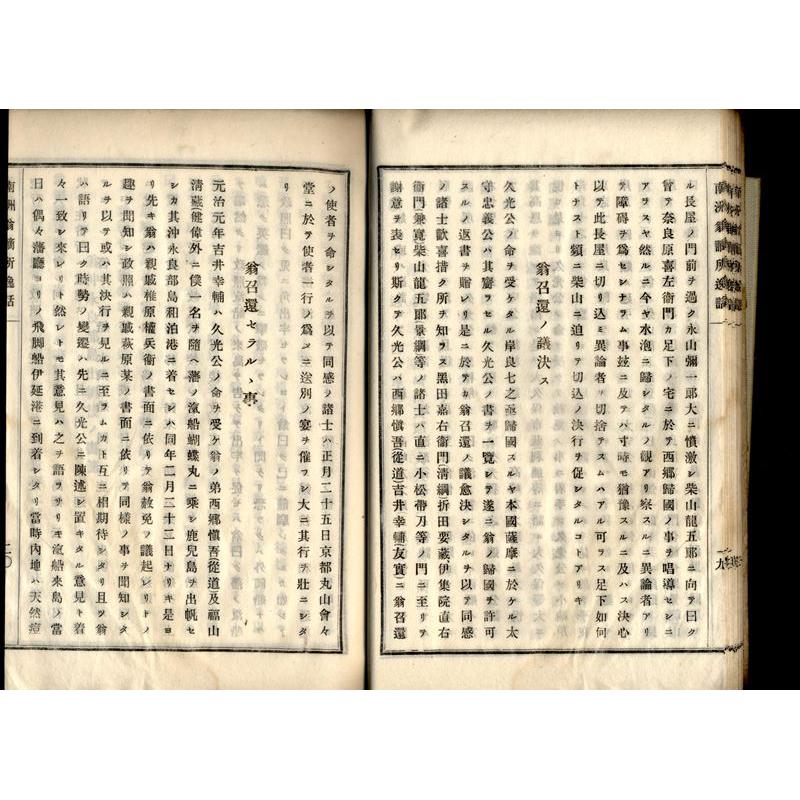 ル長屋ノ門前ヲ過ク永山彌一郎大ニ憤激シ柴山龍五郎ニ向ヲ曰ク
曾ヲ奈良原喜左衛門カ足下ノ宅ニ於ヲ西郷歸國ノ事ヲ唱導セシニ
アヲスヤ然ルニ今ヤ水泡ニ歸シタルノ觀アリ察スルニ異論者アリ
ヲ障碍ヲ爲セシナラム事玆ニ及ヲハ寸時モ猶豫スルニ及ハス決心
以ヲ此長屋ニ切リ込ミ異論者ヲ切捨ヲスムハアル可ヲス足下如何
トナスト頻ニ柴山ニ迫リヲ切込ノ決行ヲ促シタルコトアリキ
翁召還ノ議決ス
久光公ノ命ヲ受ケタル岸良七之丞歸國スルヤ本國薩摩ニ於ケル太
守忠義公ハ其實父ヲセル久光公ノ書ヲ一覽シヲ遂ニ翁ノ歸國ヲ許可
スルノ返書ヲ賜ヒシリ是ニ於ヲカ翁召還ノ議愈決シタルヲ以ヲ同感
ノ諸士歡喜措ク所ヲ知ヲス黑田嘉右衛門清綱折田要藏伊集院直右
衛門兼寛柴山龍五郎景綱等ノ諸士ハ直ニ小松帶刀等ノ門ニ至リヲ
謝意ヲ表セリ斯クヲ久光公ハ西郷愼吾(從道)吉井幸輔(友實)ニ翁召還
九
ノ使者ヲ命シタルヲ以ヲ同感ノ諸士ハ正月二十五日京都丸山會々
堂ニ於ヲ使者一行ノ爲メニ送別ノ宴ヲ催フシ大ニ其行ヲ壯ニシタ
リ
翁召還セラルヽ事
元治元年吉井幸輔ハ久光公ノ命ヲ受ケ翁ノ弟西郷愼吾(從道)及福山
清藏健偉外ニ僕一名ヲ隨ヘ藩ノ滊船蝴蝶丸ニ乘シ鹿兒島ヲ出帆セ
シカ其沖永良部島和泊港ニ着セシハ同年二月二十二日ナリキ是ヨ
リ先キ翁ハ親戚椎原權兵衛ノ書面ニ依リヲ翁赦免ヲ議起レリトノ
趣ヲ聞知シ政照ハ親戚萩原某ノ書面ニ依リヲ同樣ノ事ヲ聞知シタ
ルヲ以ヲ或ハ其決行ヲ見ルニ至ヲムカト互ニ相期待シタリ且ツ翁
ハ語リヲ曰ク時勢ノ變遷ハ先ニ久光公ニ陳述シ置キタル意見ト着
々一致シ來レリト然レトモ其意見ハ之ヲ語ヲサリキ滊船來島ノ當
日ハ偶々藩廳ヨリノ飛脚船伊延港ニ到着シタリ當時内地ハ天然痘
南洲翁謫所逸話
二〇